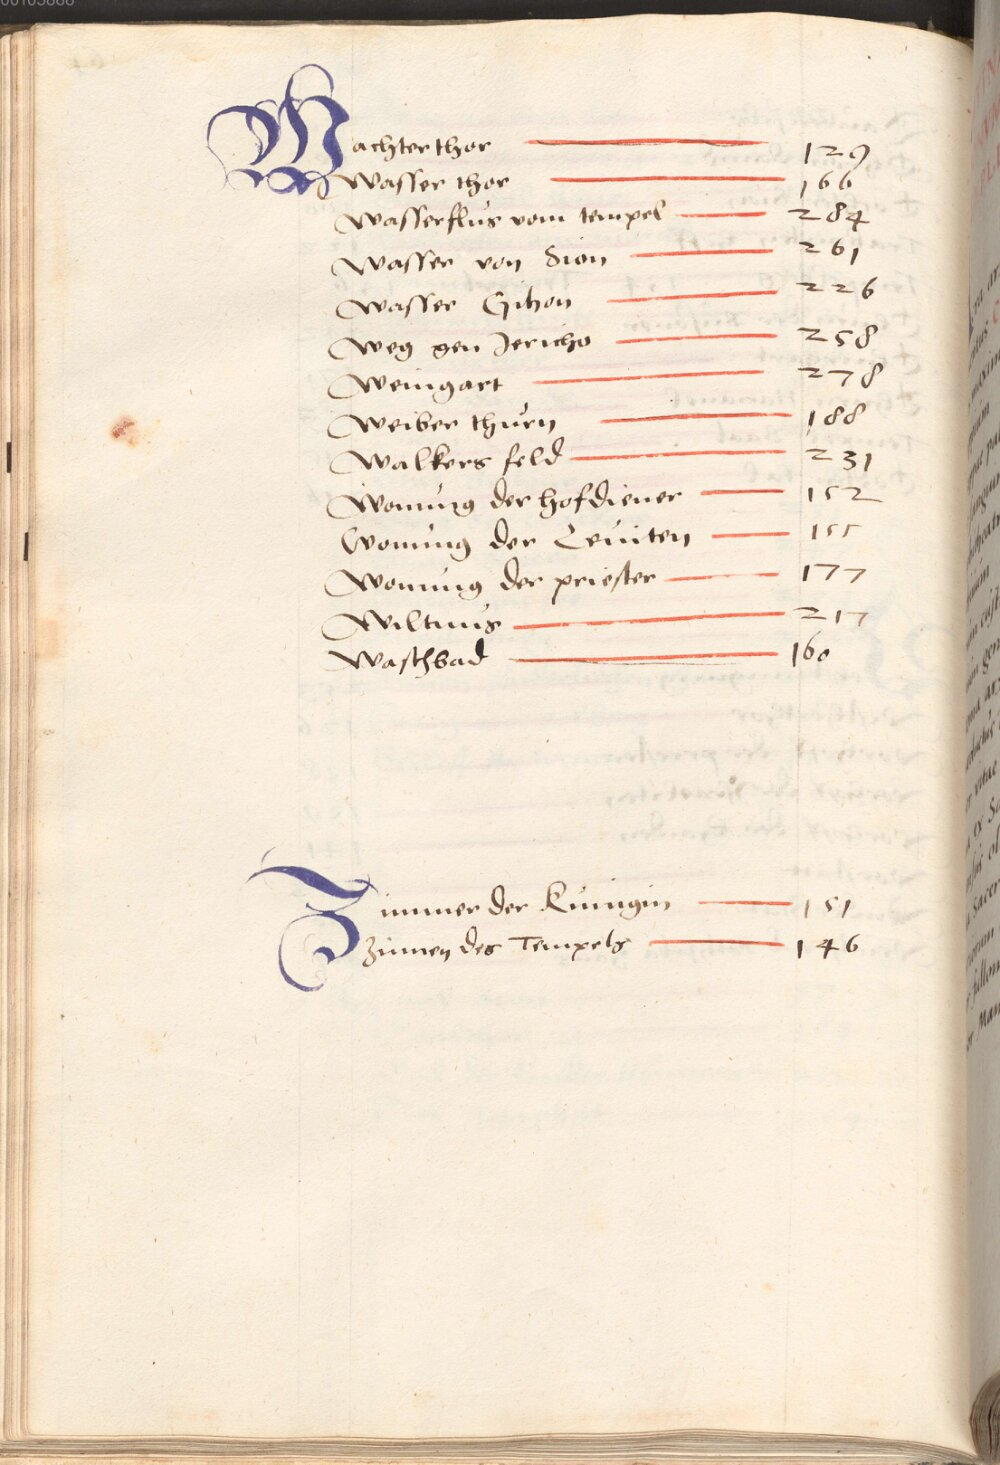 Wachter thor 129
Wasser thor 166
Wasserflus vom tempel 284
Wasser von Sion 261
Wasser Gihon 226
Weg gen Jericho 258
Weingart 278
Weiber thurn 188
Walkers feld 231
Wonung der hofdiener 152
Wonung der Leuiten 155
Wonung der priester 177
217
Waschbad 160
Zimmer der Kunigin 151
Zinnen des Tempels 146